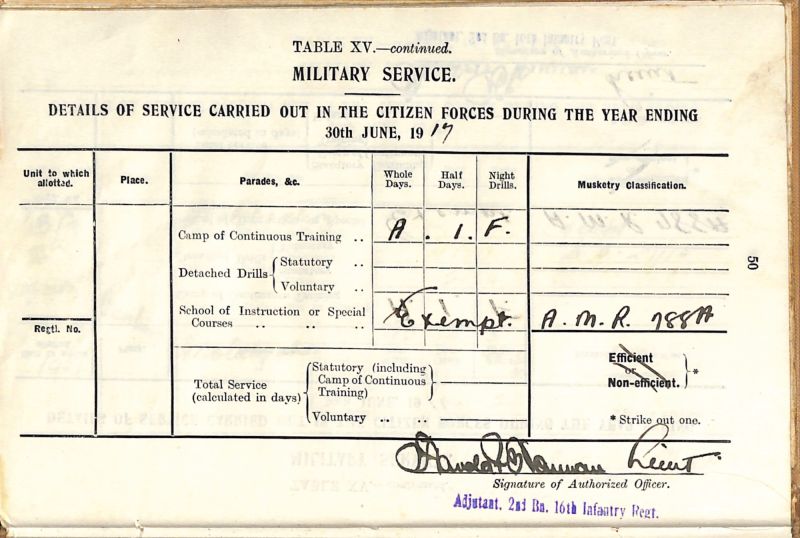 TABLE XV.—continued.
MILITARY SERVICE.
DETAILS OF SERVICE CARRIED OUT IN THE CITIZEN FORCES DURING THE YEAR ENDING
30th JUNE, 1917
Unit to which allotted.
Place.
Parades, &c.
Whole Days.
Half Days.
Night Drills.
Musketry Classification.
Camp of Continuous Training .. A. I. F.
Detached Drills
Statutory ..
Voluntary ..
School of Instruction or Special
Courses .. .. .. Exempt. A. M. R. 788A
Regtl. No.
Total Service
(calculated in days)
Statutory (including
Camp of Continuous
Training)
Voluntary ..
Efficient
or
Non-efficient. *
* Strike out one.
Lieut
Signature of Authorized Officer.
Adjutant, 2nd Bn. 16th Infantry Regt.
50